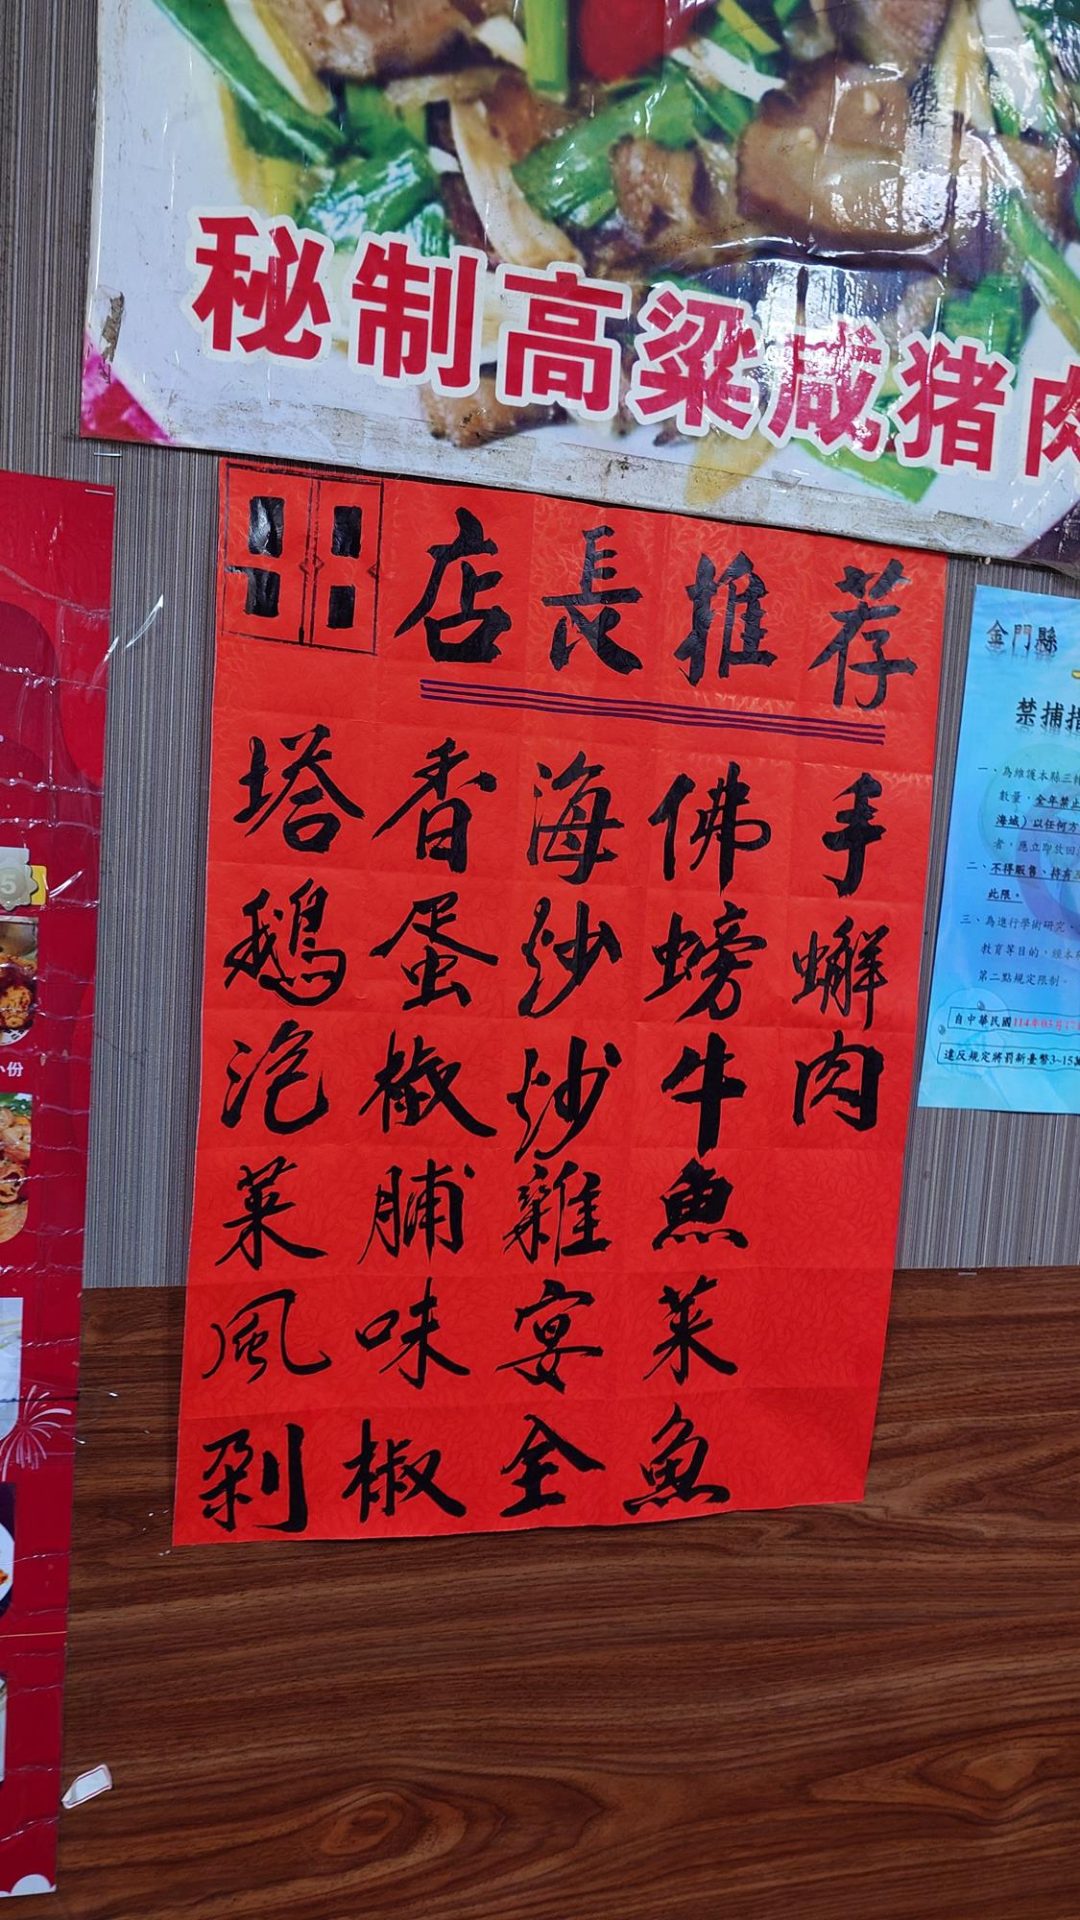 秘制高粱咸猪肉
店長推荐
塔香海佛手
鵝蛋炒螃蠏
泡椒炒牛肉
菜脯雞魚
風味宴菜
剁椒全魚
金門縣
禁捕措
一、為維護本縣三
數量，全年禁止
海域）以任何方
者，應立即放回
二、不得販售、持有
此限。
三、為進行學術研究、
教育等目的，經本
第二點規定限制。
自中華民國114年03月17
違反規定將罰新臺幣3~15萬
5
份